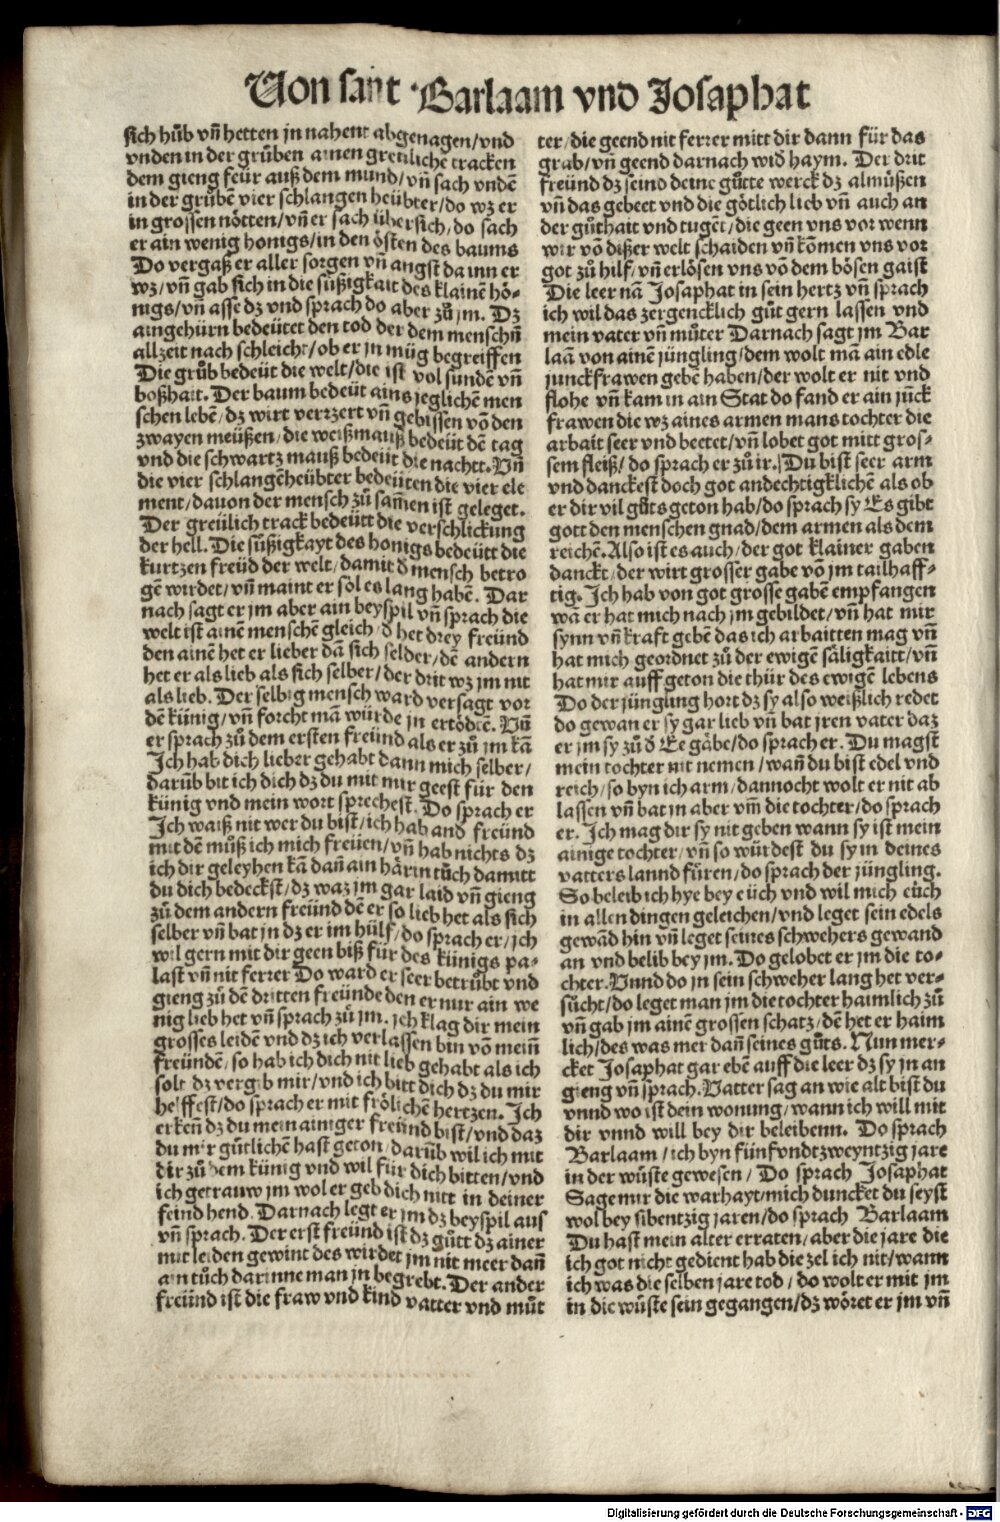 Von sant Barlaam vnd Josaphat
sich hůb vñ hetten jn nahent abgenagen/vnd
vnden in der grůben ainen greüliche tracken
dem gieng feür auß dem mund/vñ sach vndē
in der grůbē vier schlangen heübter/do wz er
in grossen nötten/vñ er sach übersich/do sach
er ain wenig honigs/in den östen des baums
Do vergaß er aller sorgen vñ angst da inn er
wz/vñ gab sich in die süßigkait des klainē hö-
nigs/vñ asse dz vnd sprach do aber zů jm. Dz
aingehürn bedeütet den tod der dem menschñ
allzeit nach schleicht/ob er jn müg begreiffen
Die grůb bedeüt die welt/die ist vol sundē vñ
boßhait. Der baum bedeüt ains jeglichē men
schen lebē/dz wirt verzert vñ gebissen vō den
zwayen meüßen/die weißmauß bedeüt dē tag
vnd die schwartz mauß bedeüt die nachtt. Vñ
die vier schlangēheübter bedeüten die vier ele
ment/dauon der mensch zů sam̄en ist geleget.
Der greülich track bedeütt die verschlickung
der hell. Die süßigkayt des honigs bedeütt die
kurtzen freüd der welt/damit d̄ mensch betro
gē wirdet/vñ maint er söl es lang habē. Dar
nach sagt er jm aber ain beyspil vñ sprach die
welt ist ainē menschē gleich/d̄ het drey freünd
den ainē het er lieber dā sich selder/dē andern
het er als lieb als sich selber/der drit wz jm nit
als lieb. Der selbig mensch ward versagt vor
dē künig/vñ forcht mā würde jn ertödtē. Vñ
er sprach zů dem ersten freünd als er zů jm kā
Ich hab dich lieber gehabt dann mich selber/
darūb bit ich dich dz du mit mir geest für den
künig vnd mein wort sprechest. Do sprach er
Ich waiß nit wer du bist/ich hab and freünd
mit dē můß ich mich freüen/vñ hab nichts dz
ich dir geleyhen kā dañ ain härin tůch damitt
du dich bedeckst/dz waz jm gar laid vñ gieng
zů dem andern freünd dē er so lieb het als sich
selber vñ bat jn dz er im hülf/do sprach er/jch
wil gern mit dir geen biß für des künigs pa-
last vñ nit ferrer Do ward er seer betrůbt vnd
gieng zů dē dritten freünde den er nur ain we
nig lieb het vñ sprach zů jm. jch klag dir mein
grosses leidē vnd dz ich verlassen bin vō meinñ
freündē/so hab ich dich nit lieb gehabt als ich
solt dz vergib mir/vnd ich bitt dich dz du mir
helffest/do sprach er mit frölichē hertzen. Ich
erkeñ dz du mein ainiger freünd bist/vnd daz
du mir gütlichē hast geton/darūb wil ich mit
dir zů dem künig vnd wil für dich bitten/vnd
ich getrauw jm wol er geb dich nitt in deiner
feind hend. Darnach legt er jm dz beyspil aus
vñ sprach. Der erst freünd ist dz gůtt dz ainer
mit leiden gewint des wirdet jm nit meer dañ
ain tůch darinne man jn begrebt. Der ander
freünd ist die fraw vnd kind vatter vnd můt
ter/die geend nit ferrer mitt dir dann für das
grab/vñ geend darnach wid̄ haym. Der drit
freünd dz seind deine gůtte werck dz almůßen
vñ das gebeet vnd die götlich lieb vñ auch an
der gůthait vnd tugēt/die geen vns vor wenn
wir vō dißer welt schaiden vñ kōmen vns vor
got zů hilf/vñ erlösen vns vō dem bösen gaist
Die leer nā Josaphat in sein hertz vñ sprach
ich wil das zergencklich gůt gern lassen vnd
mein vater vñ můter Darnach sagt jm Bar
laā von ainē jüngling/dem wolt mā ain edle
junckfrawen gebē haben/der wolt er nit vnd
flohe vñ kam in ain Stat do fand er ain jūck
frawen die wz aines armen mans tochter die
arbait seer vnd beetet/vñ lobet got mitt gros-
sem fleiß/do sprach er zů ir. Du bist seer arm
vnd danckest doch got andechtigklichē als ob
er dir vil gůts geton hab/do sprach sy Es gibt
gott den menschen gnad/dem armen als dem
reichē. Also ist es auch/der got klainer gaben
danckt/der wirt grosser gabe vō jm tailhaff-
tig. Ich hab von got grosse gabē empfangen
wā er hat mich nach jm gebildet/vñ hat mir
synn vñ kraft gebē das ich arbaitten mag vñ
hat mich geordnet zů der ewigē säligkaitt/vñ
hat mir auff geton die thür des ewigē lebens
Do der jüngling hort dz sy also weißlich redet
do gewan er sy gar lieb vñ bat jren vater daz
er jm sy zů d̄ Ee gäbe/do sprach er. Du magst
mein tochter nit nemen/wañ du bist edel vnd
reich/so byn ich arm/dannocht wolt er nit ab
lassen vñ bat in aber vm̄ die tochter/do sprach
er. Ich mag dir sy nit geben wann sy ist mein
ainige tochter/vñ so würdest du sy in deines
vatters lannd füren/do sprach der jüngling.
So beleib ich hye bey eüch vnd wil mich eüch
in allen dingen geleichen/vnd leget sein edels
gewād hin vñ leget seines schwehers gewand
an vnd belib bey jm. Do gelobet er jm die to-
chter. Vnnd do jn sein schweher lang het ver-
sůcht/do leget man jm die tochter haimlich zů
vñ gab jm ainē grossen schatz/dē het er haim
lich/des was mer dañ seines gůts. Nun mer-
cket Josaphat gar ebē auff die leer dz sy jn an
gieng vñ sprach. Vatter sag an wie alt bist du
vnnd wo ist dein wonung/wann ich will mit
dir vnnd will bey dir beleibenn. Do sprach
Barlaam/ich byn fünfvndtzweyntzig jare
in der wůste gewesen/Do sprach Josaphat
Sage mir die warhayt/mich duncket du seyst
wol bey sibentzig jaren/do sprach Barlaam
Du hast mein alter erraten/aber die jare die
ich got nicht gedient hab die zel ich nit/wann
ich was die selben jare tod/do wolt er mit jm
in die wůste sein gegangen/dz wöret er jm vñ
Digitalisierung gefördert durch die Deutsche Forschungsgemeinschaft - DFG